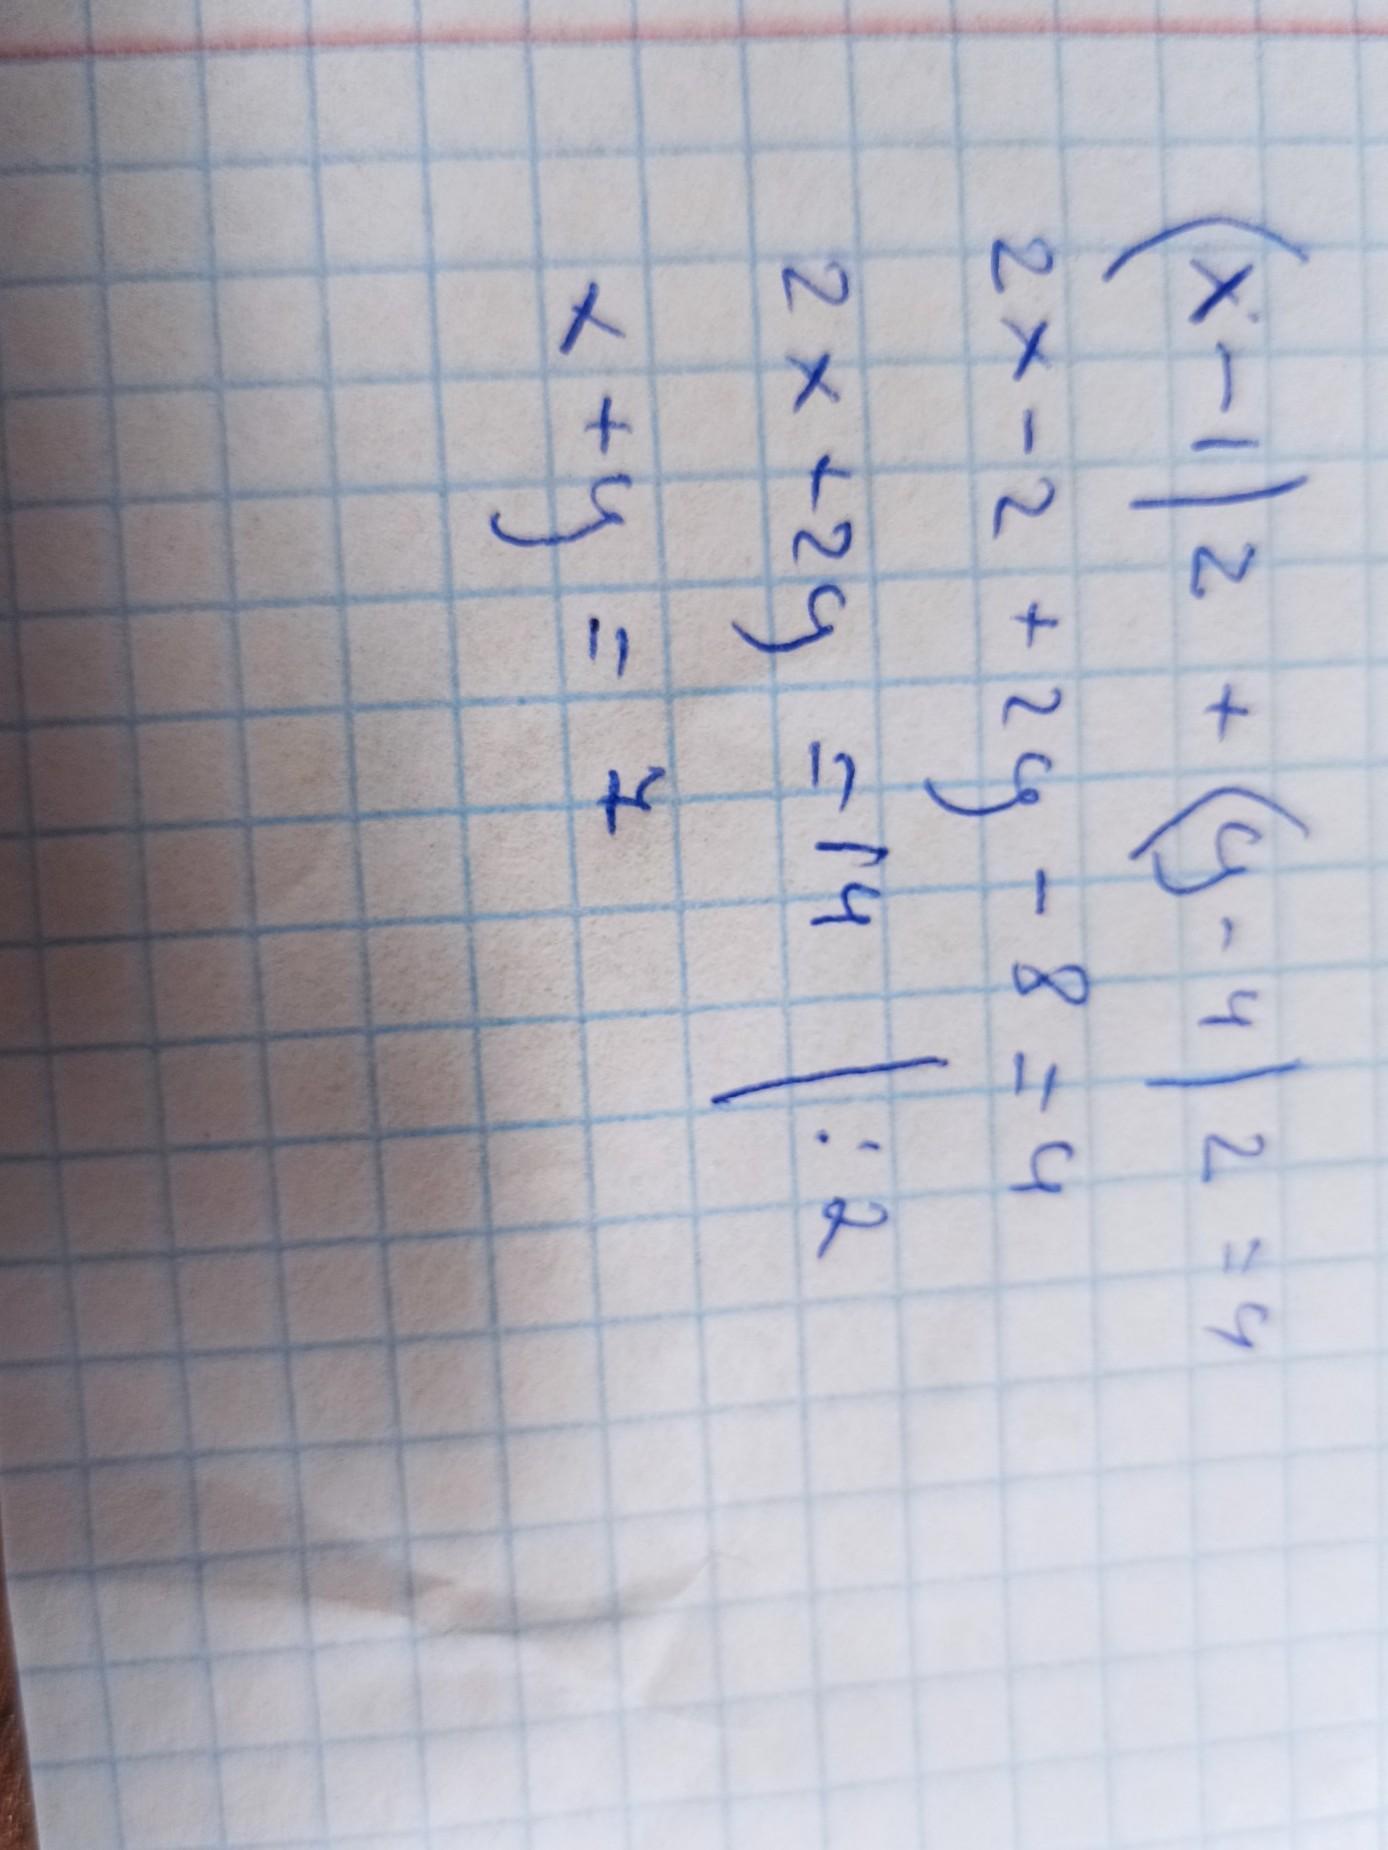 (x-1)2 + (y-4)2 = 4
2x-2 + 2y - 8 = 4
2x+2y = 14 | : 2
x+y = 7